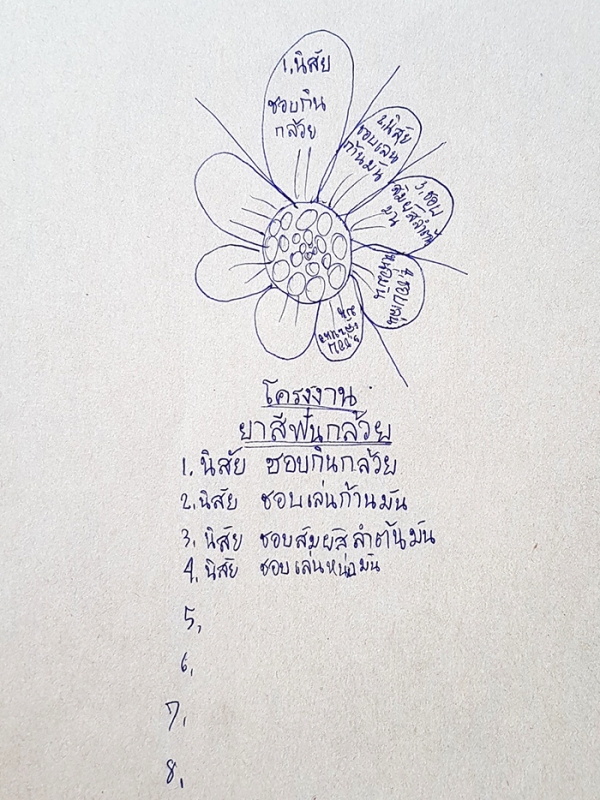 1. นิสัย
ชอบกิน
กล้วย
2. นิสัย
ชอบเล่น
ก้านมัน
3. ชอบ
สัมผัสลำต้น
มัน
4. ชอบเล่น
หน่อมัน
5. ชอบ
โครงงาน
ยาสีฟันกล้วย
1. นิสัย ชอบกินกล้วย
2. นิสัย ชอบเล่นก้านมัน
3. นิสัย ชอบสัมผัสลำต้นมัน
4. นิสัย ชอบเล่นหน่อมัน
5.
6.
7.
8.